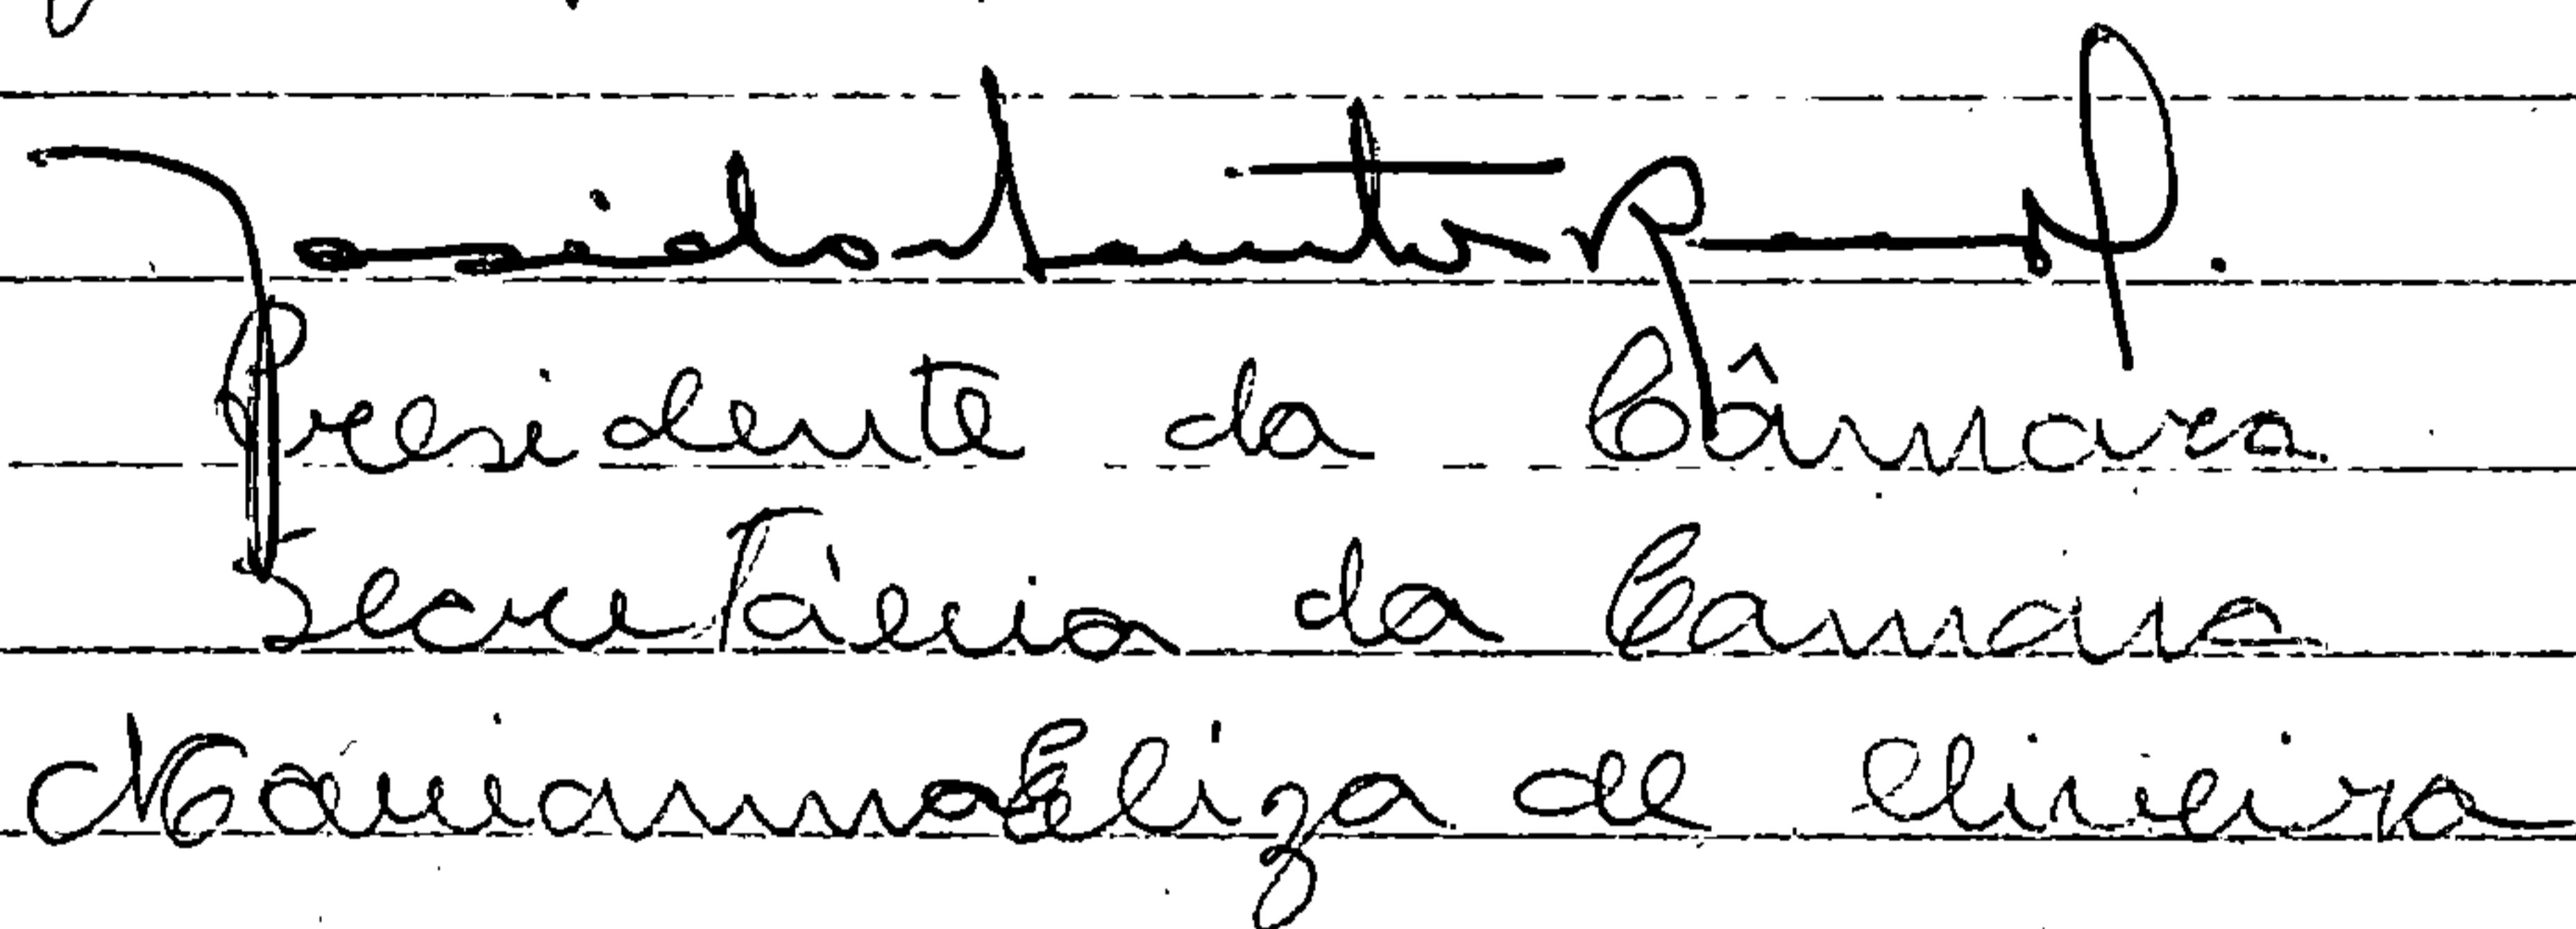 Presidente da Câmara
Secretária da Camara
Marianna Eliza de Oliveira